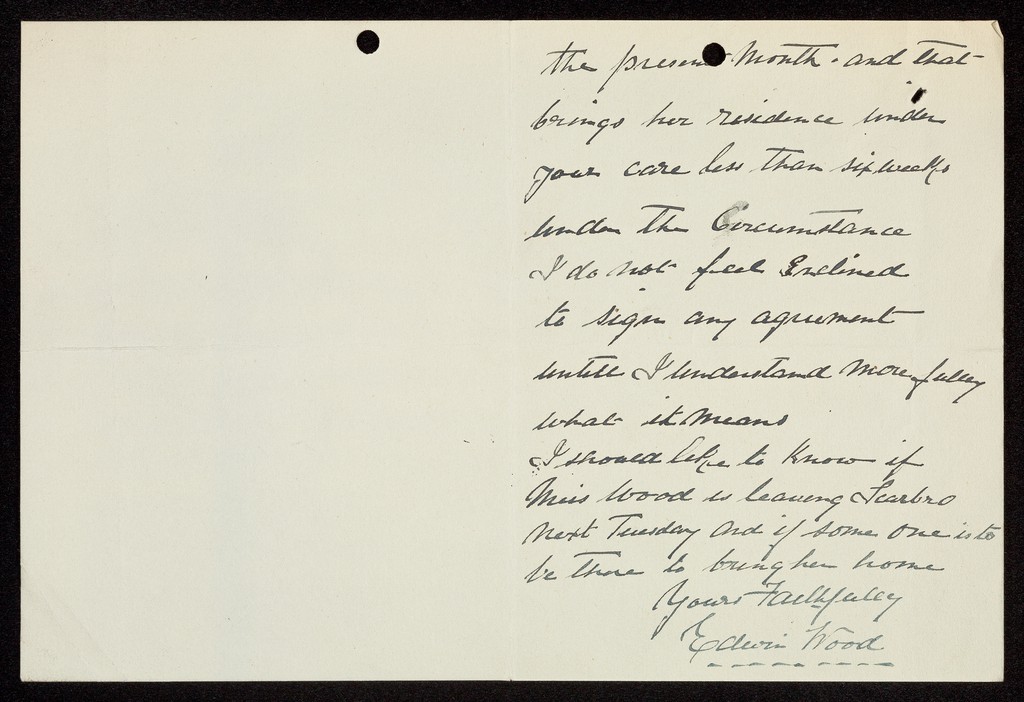 the present Month. and that
brings her residence under
your care less than six weeks
under the Circumstance
I do not feel Enclined
to sign any agreement
untill I understand more fulley
what it means
I should like to Know if
Miss Wood is leaveng Scarbro
next Tuesday and if some one is to
be there to bring her home
Yours Faithfulley
Edwin Wood